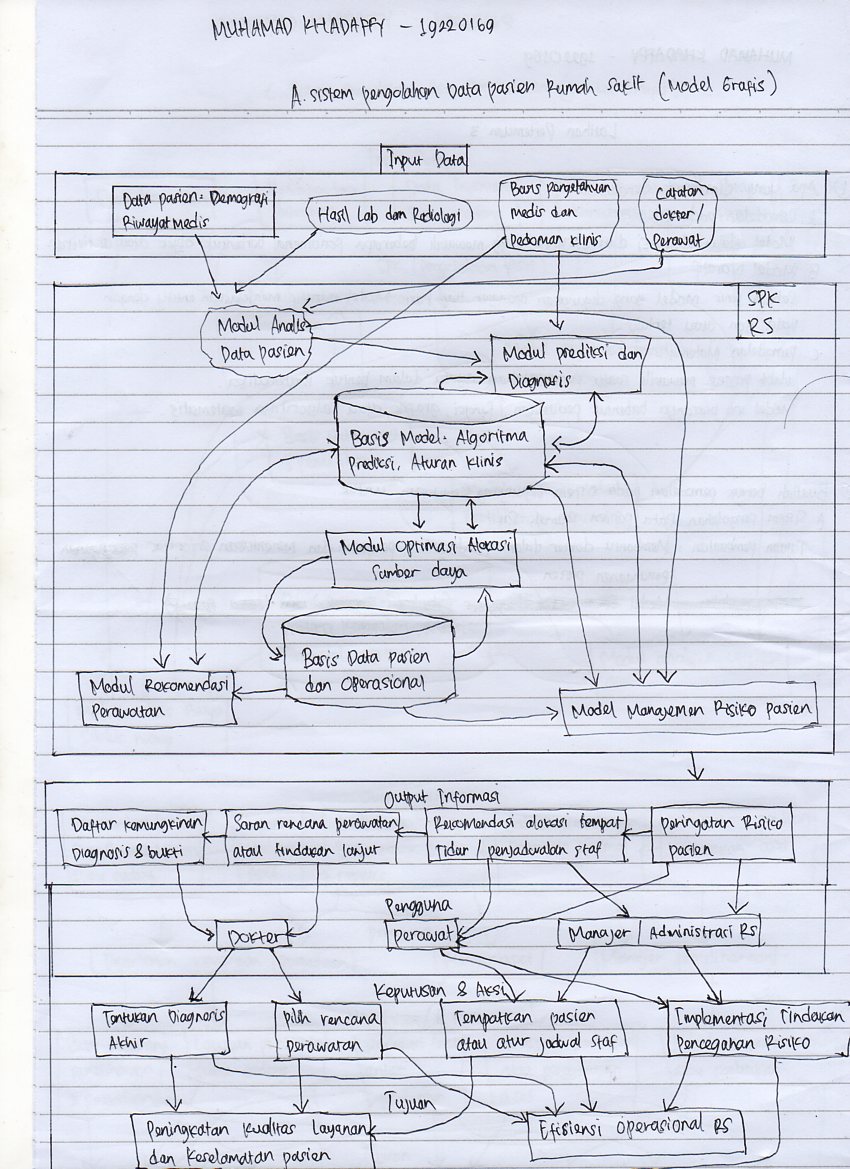 MUHAMAD KHADAFFY - 19220169
A. sistem pengolahan Data pasien Rumah Sakit (Model Grafis)
Input Data
Data pasien: Demografi
Riwayat Medis
Hasil Lab dan Radiologi
Basis pengetahuan
medis dan
Pedoman Klinis
Catatan
dokter/
Perawat
SPK
RS
Modul Analis
Data pasien
Modul prediksi dan
Diagnosis
Basis Model: Algoritma
Prediksi, Aturan Klinis
Modul Optimasi Alokasi
Sumber daya
Basis Data pasien
dan Operasional
Modul Rekomendasi
Perawatan
Model Manajemen Risiko pasien
Output Informasi
Daftar kemungkinan
Diagnosis & bukti
Saran rencana perawatan
atau tindakan lanjut
Rekomendasi alokasi tempat
Tidur / penjadwalan staf
Peringatan Risiko
pasien
Pengguna
Dokter
perawat
Manajer / Administrasi RS
Keputusan & Aksi
Tentukan Diagnosis
Akhir
pilih rencana
perawatan
Tempatkan pasien
atau atur jadwal staf
Implementasi Tindakan
Pencegahan Risiko
Tujuan
Peningkatan kualitas layanan
dan Keselamatan pasien
Efisiensi Operasional RS